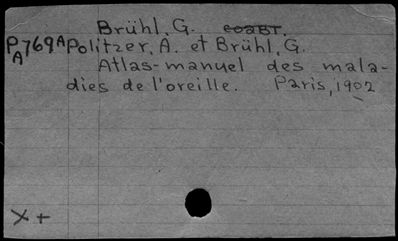 Brühl, G. coaвт.
PA769A Politzer, A. et Brühl, G.
Atlas-manuel des mala-
dies de l'oreille. Paris, 1902
X +